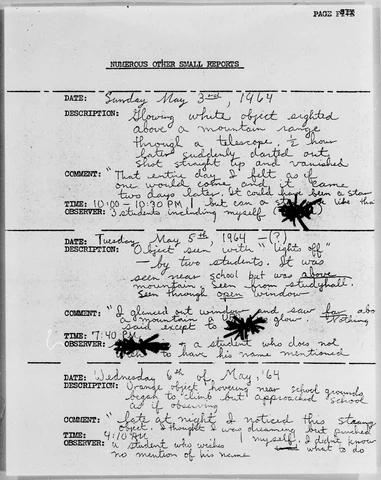 PAGE SIX
NUMEROUS OTHER SMALL REPORTS
DATE: Sunday May 3rd, 1964
DESCRIPTION: Glowing white object sighted
above a mountain range
through a telescope. ½ hour
later suddenly darted out
shot straight up and vanished
COMMENT: "That entire day I felt as if
one would come and it came
two days later. It could have been a star
TIME: 10:00 - 10:30 PM but can a star like that
OBSERVER: 3 students including myself
DATE: Tuesday May 5th, 1964 - (?)
DESCRIPTION: Object seen with "lights off"
- by two students. It was
seen near school but was above
mountain. Seen from studyhall.
Seen through open window
COMMENT: "I glanced out window and saw far abo
a mountain glow. Nothing
said except to
TIME: 7:40 PM
OBSERVER: - a student who does not
to have his name mentioned
DATE: Wednesday 6th of May, '64
DESCRIPTION: Orange object hovering near school grounds
began to climb but approached school
as if observing
COMMENT: "Late at night I noticed this strang
object. I thought I was dreaming but pinched
TIME: 4:10 AM myself. I didn't know
OBSERVER: a student who wishes what to do
no mention of his name